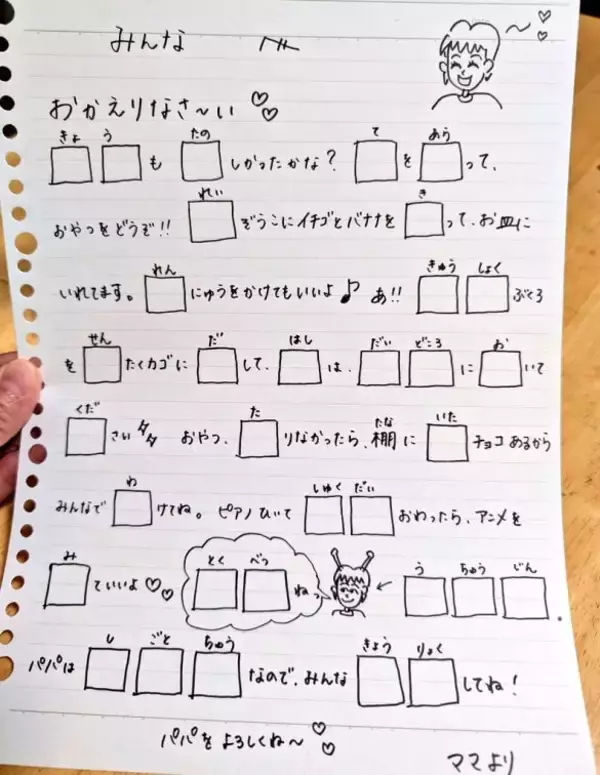 みんな へ
おかえりなさ〜い♡♡
きょ う たの て あら
□□も□しかったかな?□を□って、
れい き
おやつをどうぞ!!□ぞうこにイチゴとバナナを□って、お皿に
れん きゅう しょく
いれてます。□にゅうをかけてもいいよ♪ あ!!□□ぶくろ
せん だ はし だい どころ お
を□たくカゴに□して、□は、□□に□いて
くだ た たな いた
□さい おやつ、□りなかったら、棚に□チョコあるから
わ しゅく だい
みんなで□けてね。ピアノひいて□□おわったら、アニメを
み とく べつ う ちゅう じん
□ていいよ♡♡ □□ねっ ← □□□.
し ごと ちゅう きょう りょく
パパは□□□なので、みんな□□してね!
パパをよろしくね〜♡♡
ママより